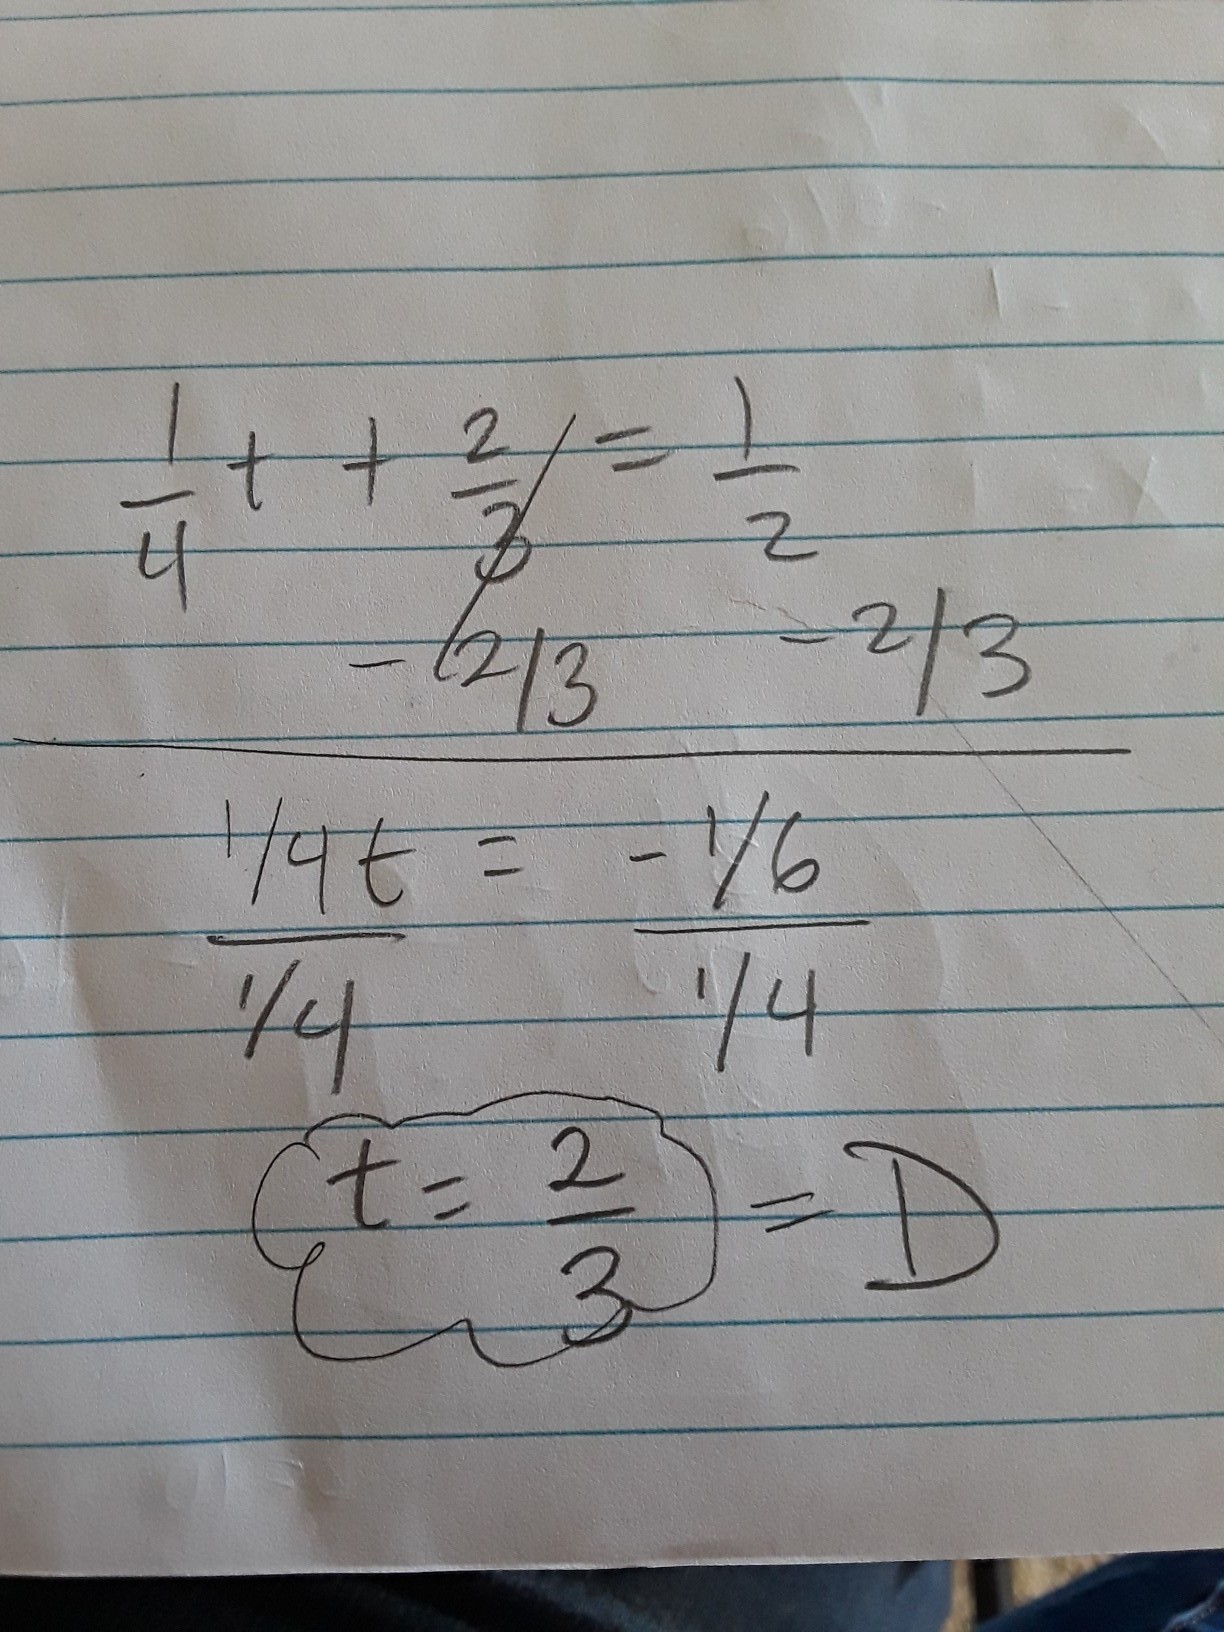 1/4 t + 2/3 = 1/2
- 2/3 - 2/3
1/4 t = - 1/6
1/4 1/4
t = 2/3 = D